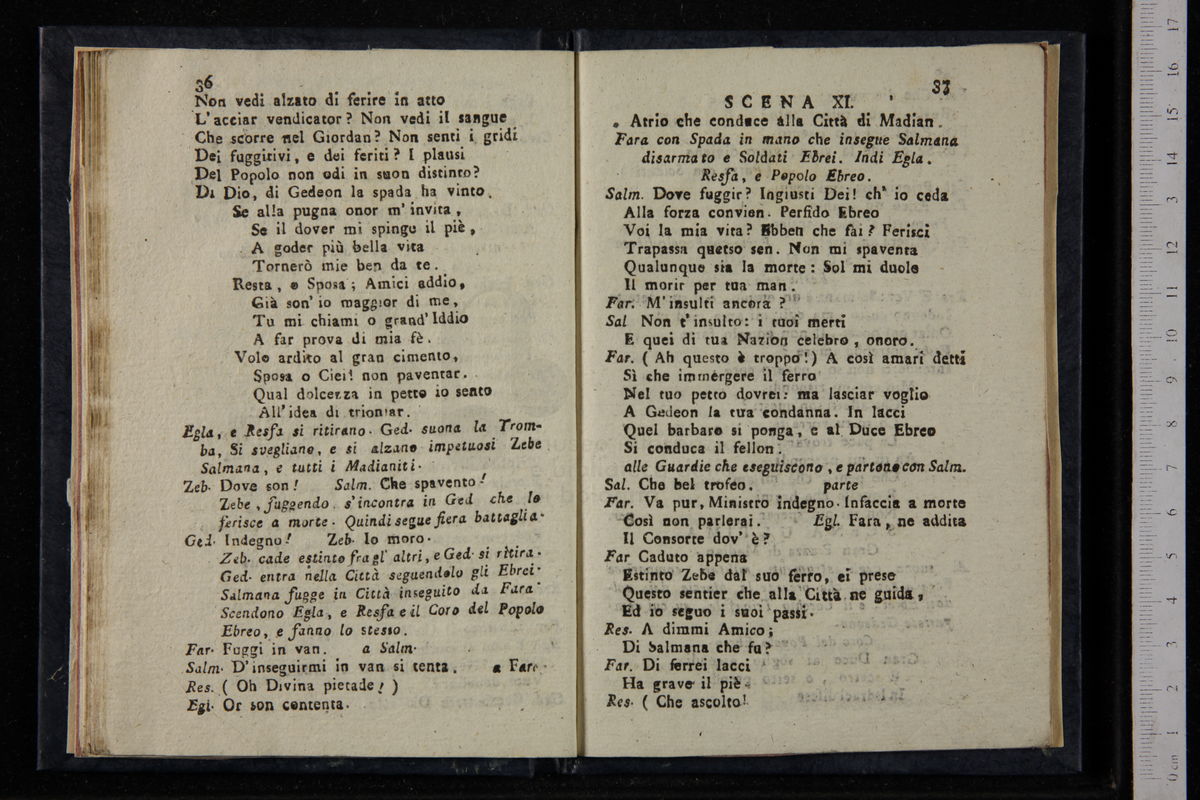 36
Non vedi alzato di ferire in atto
L'acciar vendicator? Non vedi il sangue
Che scorre nel Giordan? Non senti i gridi
Dei fuggitivi, e dei feriti? I plausi
Del Popolo non odi in suon distinto?
Di Dio, di Gedeon la spada ha vinto.
Se alla pugna onor m'invita,
Se il dover mi spinge il piè,
A goder più bella vita
Tornerò mie ben da te.
Resta, o Sposa; Amici addio,
Già son' io maggior di me,
Tu mi chiami o grand' Iddio
A far prova di mia fè.
Volo ardito al gran cimento,
Sposa o Ciei! non paventar.
Qual dolcezza in petto io sento
All' idea di trionfar.
Egla, e Resfa si ritirano. Ged. suona la Trom-
ba, Si svegliano, e si alzano impetuosi Zebe
Salmana, e tutti i Madianiti.
Zeb. Dove son! Salm. Che spavento!
Zebe, fuggendo s'incontra in Ged che lo
ferisce a morte. Quindi segue fiera battaglia.
Ged. Indegno! Zeb. Io moro.
Zeb. cade estinto fra gl' altri, e Ged. si ritira.
Ged. entra nella Città seguendolo gli Ebrei.
Salmana fugge in Città inseguito da Fara
Scendono Egla, e Resfa e il Coro del Popolo
Ebreo, e fanno lo stesso.
Far. Fuggi in van. a Salm.
Salm. D'inseguirmi in van si tenta. a Far.
Res. ( Oh Divina pietade! )
Egi. Or son contenta.
37
SCENA XI.
Atrio che conduce alla Città di Madian.
Fara con Spada in mano che insegue Salmana
disarmato e Soldati Ebrei. Indi Egla.
Resfa, e Popolo Ebreo.
Salm. Dove fuggir? Ingiusti Dei! ch' io ceda
Alla forza convien. Perfido Ebreo
Voi la mia vita? Ebben che fai? Ferisci
Trapassa quetso sen. Non mi spaventa
Qualunque sia la morte: Sol mi duole
Il morir per tua man.
Far. M'insulti ancora?
Sal Non t'insulto: i tuoi merti
E quei di tua Nazion celebro, onoro.
Far. ( Ah questo è troppo!) A così amari detti
Sì che immergere il ferro
Nel tuo petto dovrei: ma lasciar voglio
A Gedeon la tua condanna. In lacci
Quel barbaro si ponga, e al Duce Ebreo
Si conduca il fellon.
alle Guardie che eseguiscono, e partono con Salm.
Sal. Che bel trofeo. parte
Far. Va pur, Ministro indegno. Infaccia a morte
Così non parlerai. Egl. Fara, ne addita
Il Consorte dov' è?
Far Caduto appena
Estinto Zebe dal suo ferro, ei prese
Questo sentier che alla Città ne guida,
Ed io seguo i suoi passi.
Res. A dimmi Amico;
Di Salmana che fu?
Far. Di ferrei lacci
Ha grave il piè.
Res. ( Che ascolto!
0 cm 1 2 3 4 5 6 7 8 9 10 11 12 13 14 15 16 17